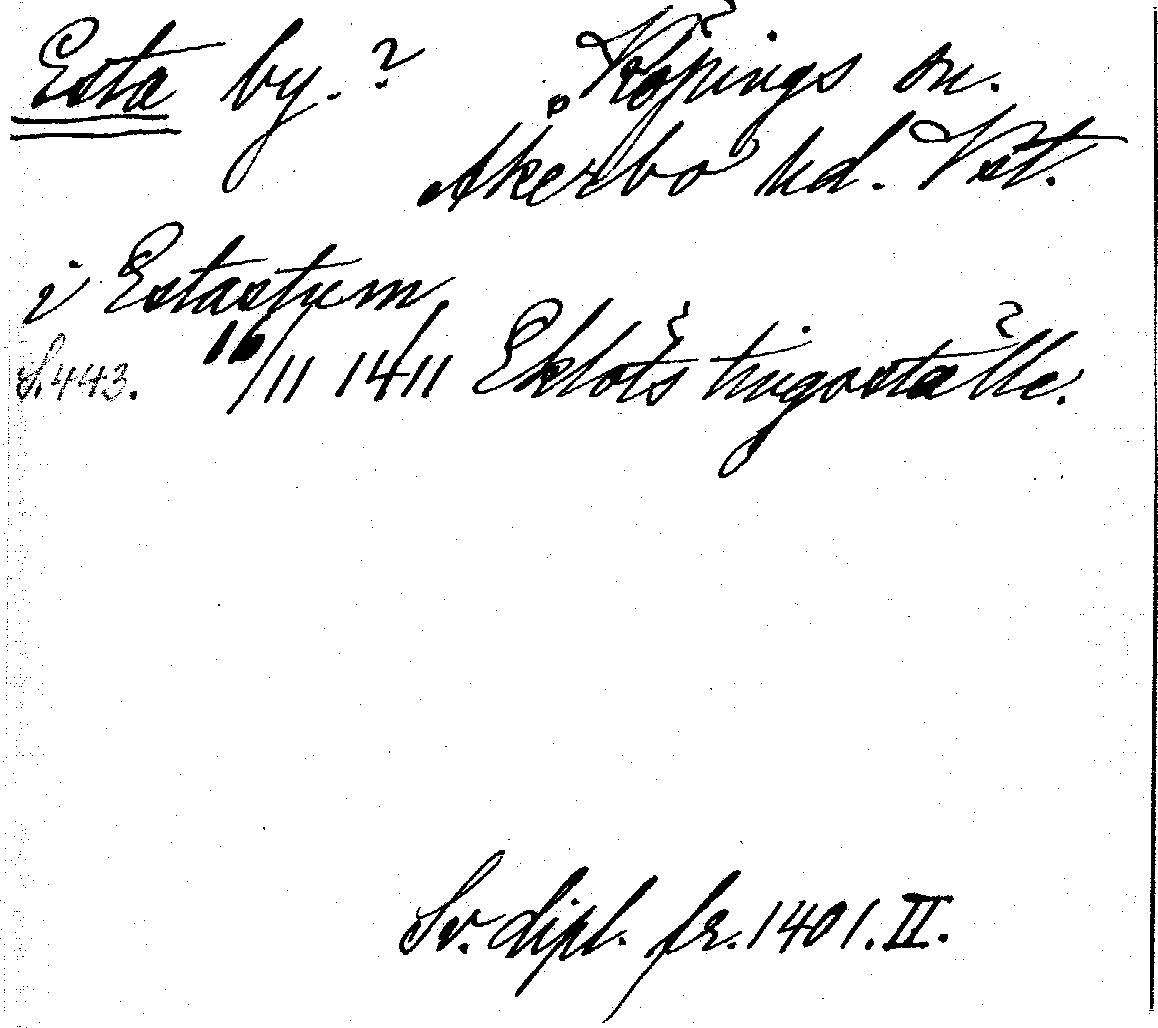 Esta by.? Köpings sn.
Åkerbo hd. Vst.
i Estastum
S. 443. 16/11 1411 Eklöts tingställe.
Sv. dipl. fr. 1401. II.